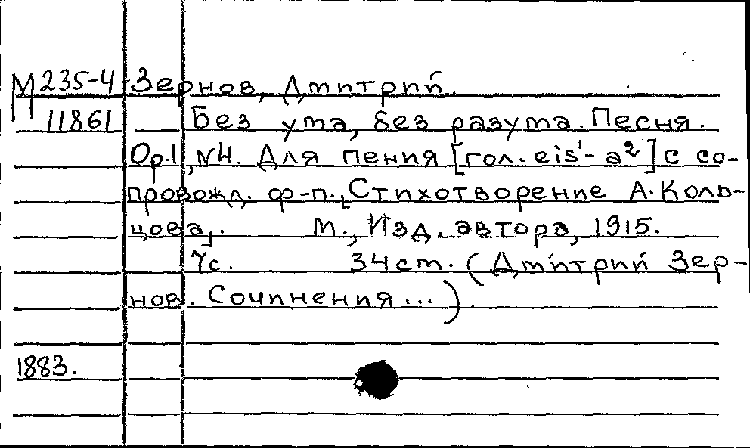 М 235-4 Зернов, Дмитрий.
11861 Без ума, без разума. Песня.
Op.1, №4. Для пения [гол. eis¹-a²] с со-
провожд. ф-п., [Стихотворение А. Коль-
цова]. М., Изд. автора, 1915.
7с. 34см. (Дмитрий Зер-
нов. Сочинения...)
1883.